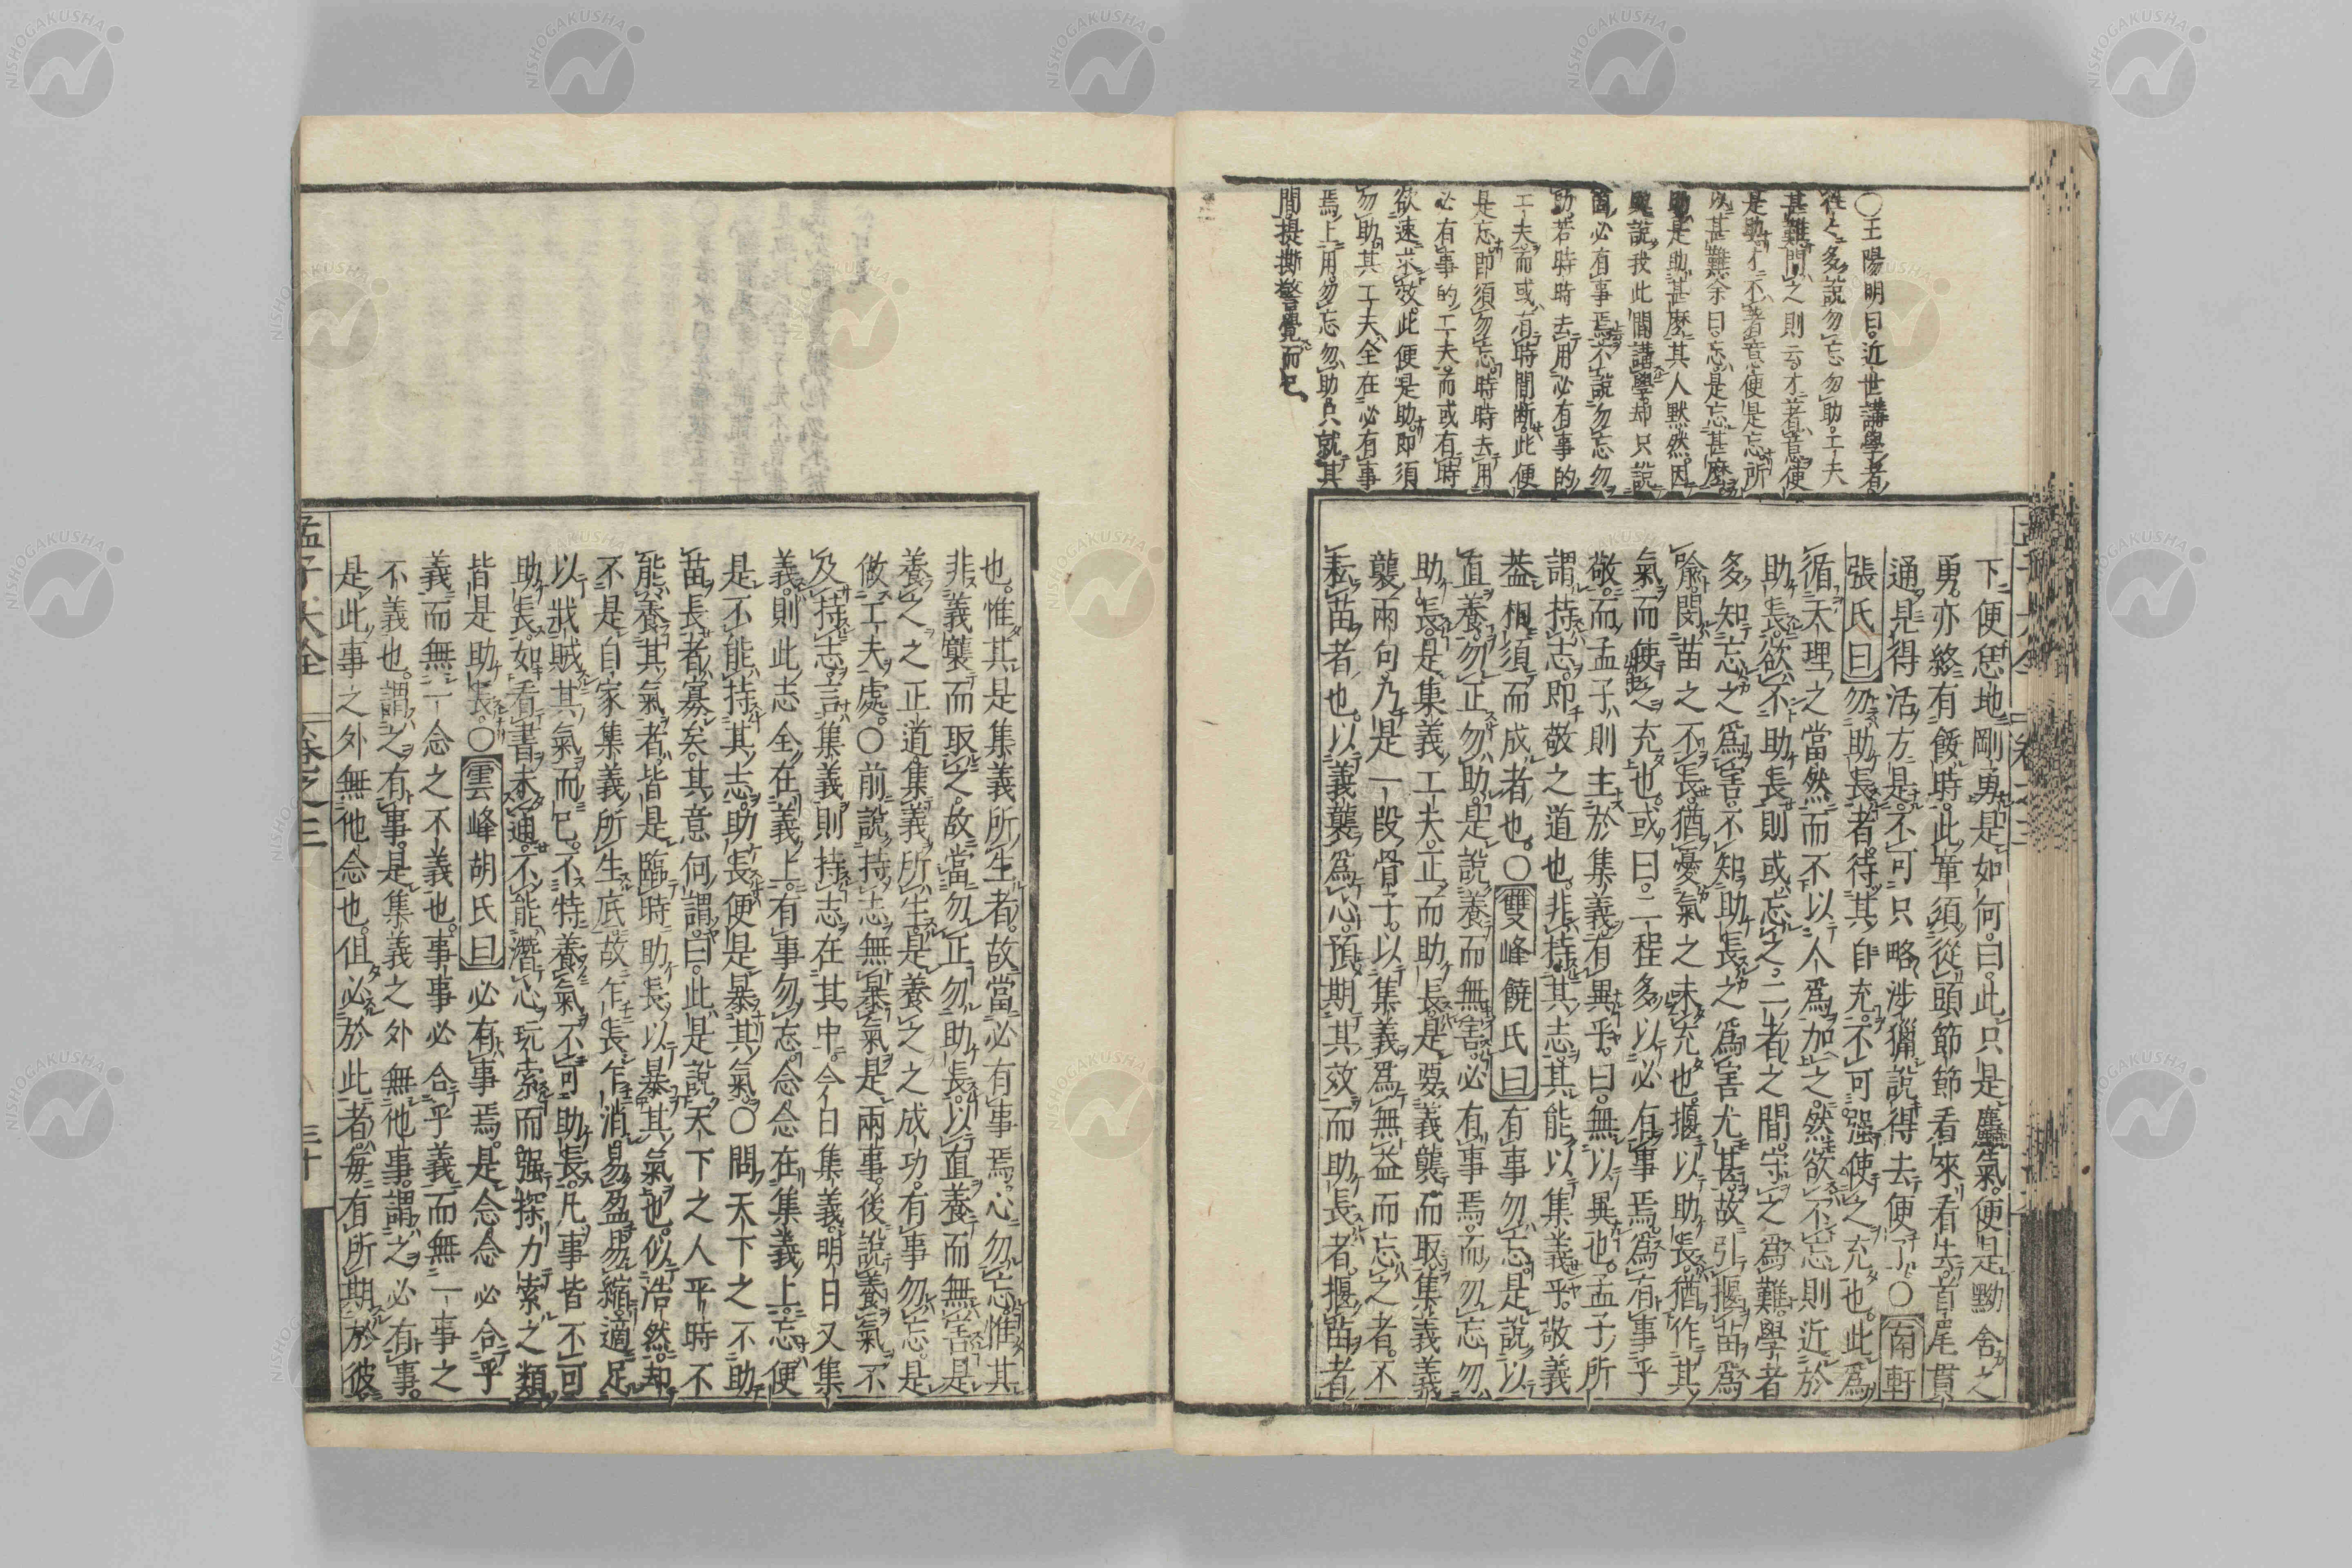 ○王陽明曰。近世講學者
往々多說勿忘勿助。工夫
甚難。問之則云。才著意便
是助。才不著意便是忘。所
以甚難。余曰。忘是忘甚麼
助是助甚麼。其人默然。因
與說我此間講學。却只說
箇必有事焉。不說勿忘勿
助。若時時去用必有事的
工夫。而或有時間斷。此便
是忘。即須勿忘。時時去用
必有事的工夫。而或有時
欲速求效。此便是助。即須
勿助。其工夫全在必有事
焉上用。勿忘勿助。只就其
間提撕警覺而已。
下便恁地剛勇是如何。曰。此只是麤氣。便是黝舍之
勇。亦終有餒時。此章須從頭節節看來看去。首尾貫
通。見得活方是。不可只略涉獵說得去便了。○南軒
張氏曰勿助長者。待其自充。不可强使之充也。此爲
循天理之當然。而不以人爲加之。然欲不忘則近於
助長。欲不助長則或忘之。二者之間。守之爲難。學者
多知忘之爲害。不知助長之爲害尤甚。故引揠苗爲
喩。閔苗之不長。猶憂氣之未充也。揠以助長。猶作其
氣而使之充也。或曰。二程多以必有事焉。爲有事乎
敬。而孟子則主於集義。有異乎。曰。無以異也。孟子所
謂持志。即敬之道也。非持其志。其能以集義乎。敬義
葢相須而成者也。○雙峰饒氏曰有事勿忘。是說以
直養。勿正勿助。是說養而無害。必有事焉。而勿忘勿
助長。是集義工夫。正而助長。是要義襲而取。集義義
襲兩句。乃是一段骨子。以集義爲無益而忘之者。不
耘苗者也。以義襲爲心。預期其效而助長者。揠苗者
也。惟其是集義所生者。故當必有事焉。心勿忘。惟其
非義襲而取之。故當勿正勿助長。以直養而無害。是
養之之正道。集義所生。是養之之成功。有事勿忘。是
做工夫處。○前說持志無暴氣。是兩事。後說養氣。不
及持志。言集義則持志在其中。今日集義。明日又集
義。則此志全在義上。有事勿忘。念念在集義上。忘便
是不能持其志。助長便是暴其氣。○問天下之不助
苗長者寡矣。其意何謂。曰。此是說天下之人平時不
能養其氣者。皆是臨時助長以暴其氣也。似浩然。却
不是自家集義所生底。故乍長乍消。易盈易縮。適足
以戕賊其氣而已。不特養氣不可助長。凡事皆不可
助長。如看書未通。不能潛心玩索。而强探力索之類
皆是助長。○雲峰胡氏曰必有事焉。是念念必合乎
義。而無一念之不義也。事事必合乎義。而無一事之
不義也。謂之有事。是集義之外無他事。謂之必有事。
是此事之外無他念也。但必於此者。每有所期於彼
孟子大全 卷之三 三十